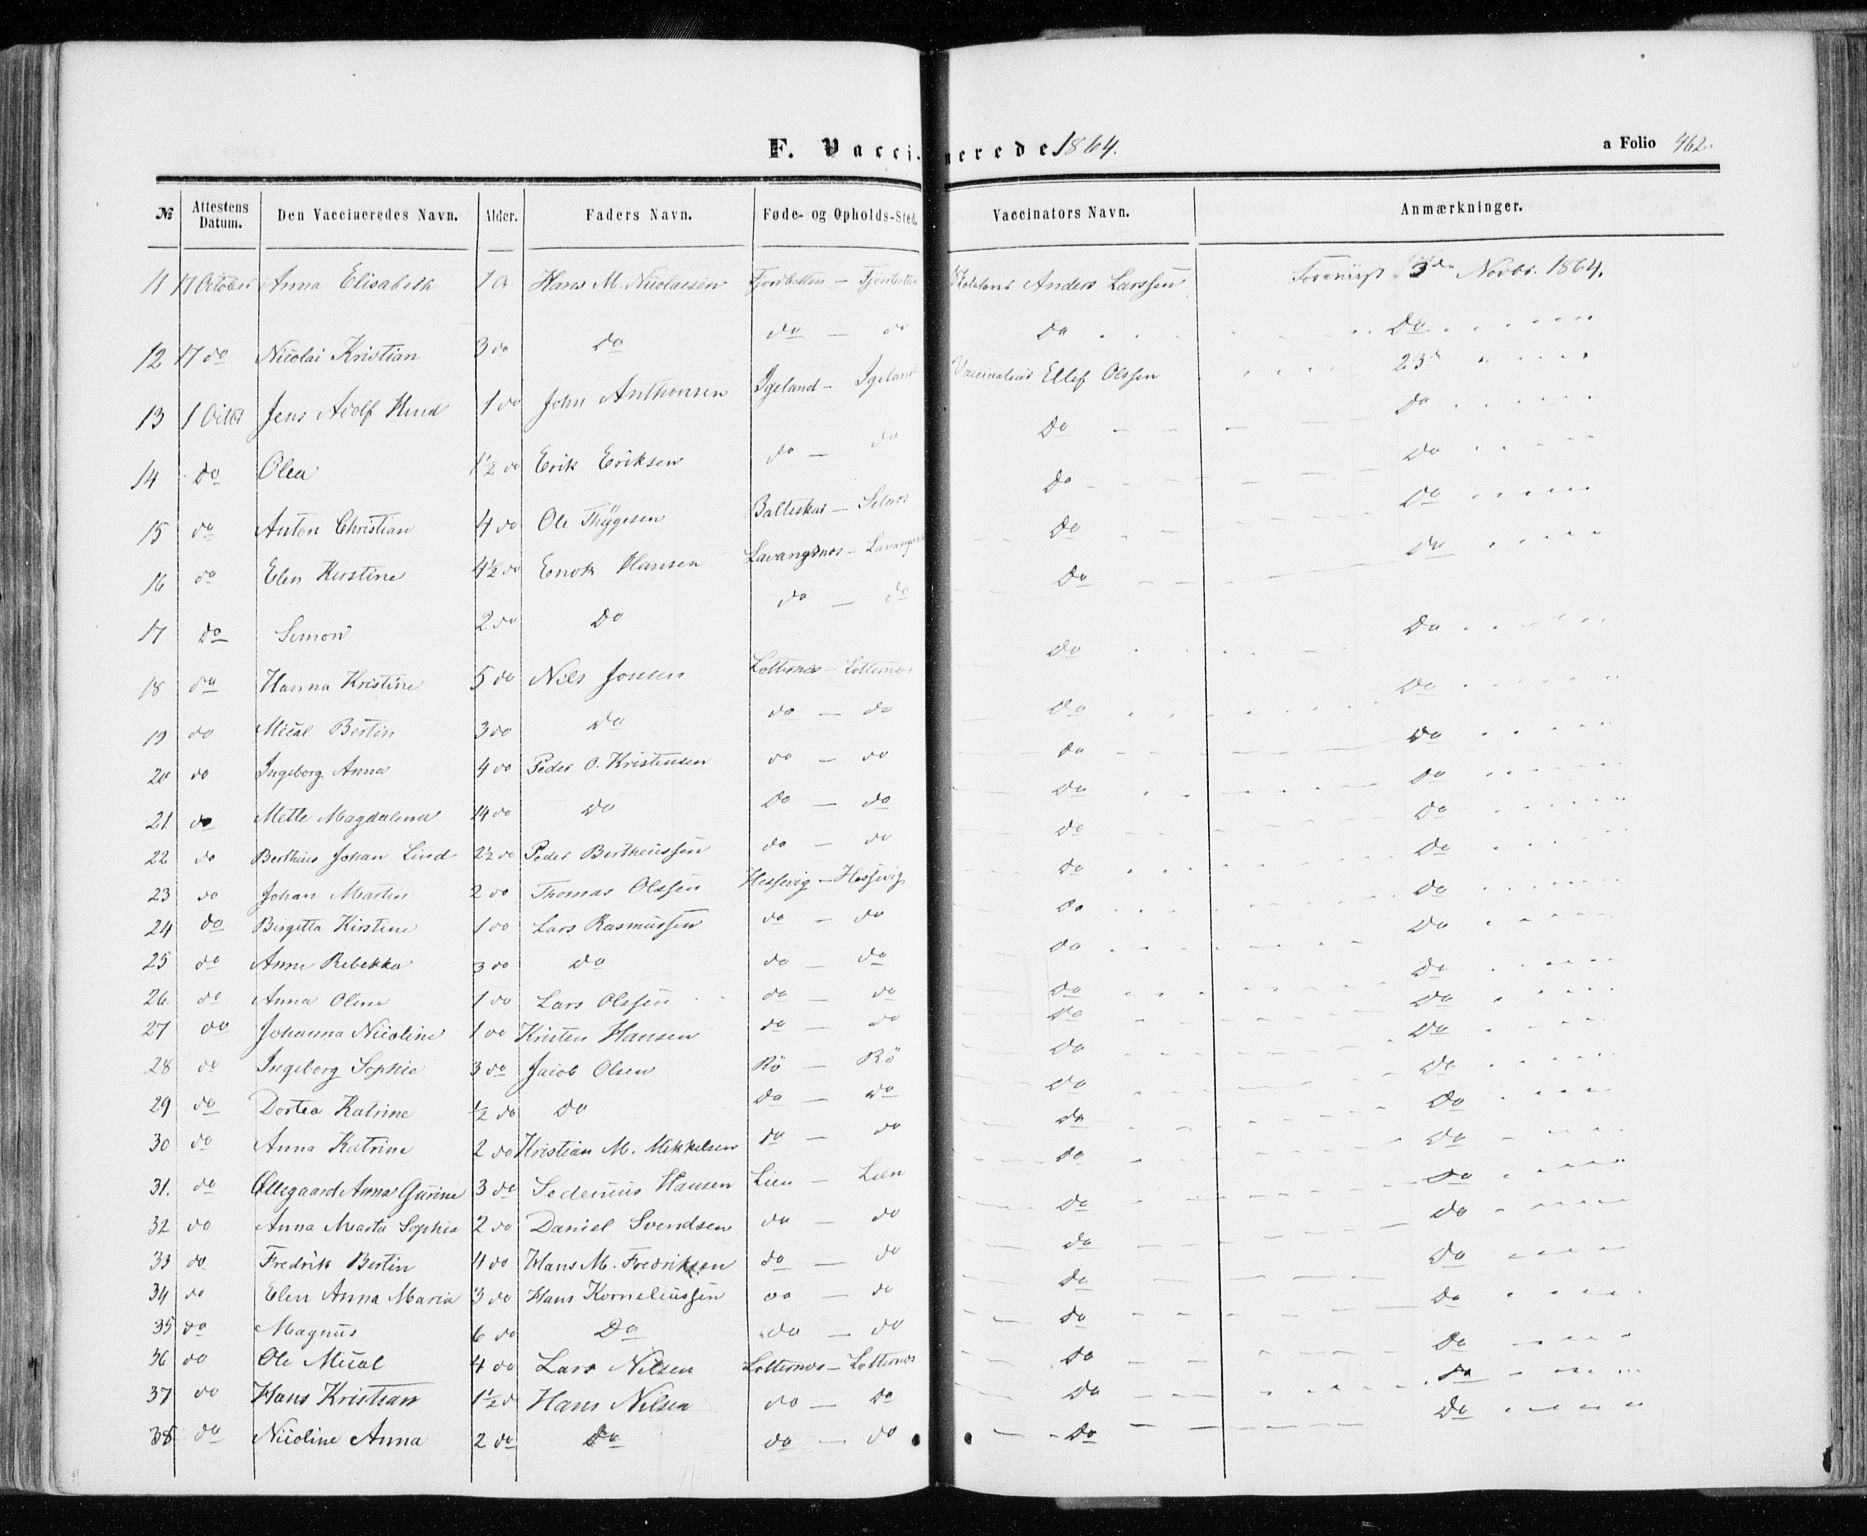 F. Vaccinerede 1864.
a Folio 462.
№ Attestens Datum. Den Vaccineredes Navn. Alder. Faders Navn. Føde- og Opholds-Sted. Vaccinators Navn. Anmærkninger.
11 17 October Anna Elisabeth 1 a Hans M. Nicolaisen Fjordbotten - Fjordbotten Anders Larssen Foreviist 3de Novbr. 1864.
12 17 do Nicolai Kristian 3 do Do do - do Do Do
13 1 Octbr Jens Adolf Knud 1 do John Anthonsen Igeland - Igeland Vaccinateur Ellef Olssen 23d "
14 do Olea 1½ do Erik Eriksen do - do Do Do
15 do Anton Christian 4 do Ole Thygesen Balteskar - Selnes Do Do
16 do Elen Kirstine 4½ do Enok Hansen Lavangsnes - Lavangsnes Do Do
17 Do Simon 2 do Do do - do Do Do
18 do Hanna Kristine 5 do Nils Jonsen Lotternes - Lotternes Do Do
19 do Mical Bertin 3 do Do do - do Do Do
20 do Ingeborg Anna 4 do Peder O. Kristensen do - do Do Do
21 do Mette Magdalena 14 do Do Do - do Do Do
22 do Berthius Johan Lind 2½ do Peder Bertheussen do - do Do Do
23 do Johan Martin 2 do Thomas Olssen Hessevig - Hessevig Do Do
24 do Birgitta Kirstine 1 do Lars Rasmussen do - do Do Do
25 do Anne Rebekka 3 do Do do - do Do Do
26 do Anna Oline 1 do Lars Olssen do - do Do Do
27 do Johanna Nicoline 1 do Kristen Hansen do - do Do Do
28 do Ingeborg Sophie 3 do Jacob Olsen Rö - Rö Do Do
29 do Dortea Katrine ½ do Do do - do Do Do
30 do Anna Katrine 2 do Kristian M. Mikkelsen do - do Do Do
31. do Ollegaard Anna Gurine 3 do Sedenius Hansen Lien - Lien Do Do
32 do Anna Marta Sophia 2 do Daniel Svendsen do - do Do Do
33 do Fredrik Bertin 4 do Hans M. Fredriksen do - do Do Do
34 do Elen Anna Maria 3 do Hans Korneliussen do - do Do Do
35 do Magnus 6 do Do do - do Do Do
36 do Ole Mical 4 do Lars Nilsen Lotternes - Lotternes Do Do
37 do Hans Kristian 1½ d Hans Nilsen do - Do Do Do
38 do Nicoline Anna 2 do Do do - do Do Do